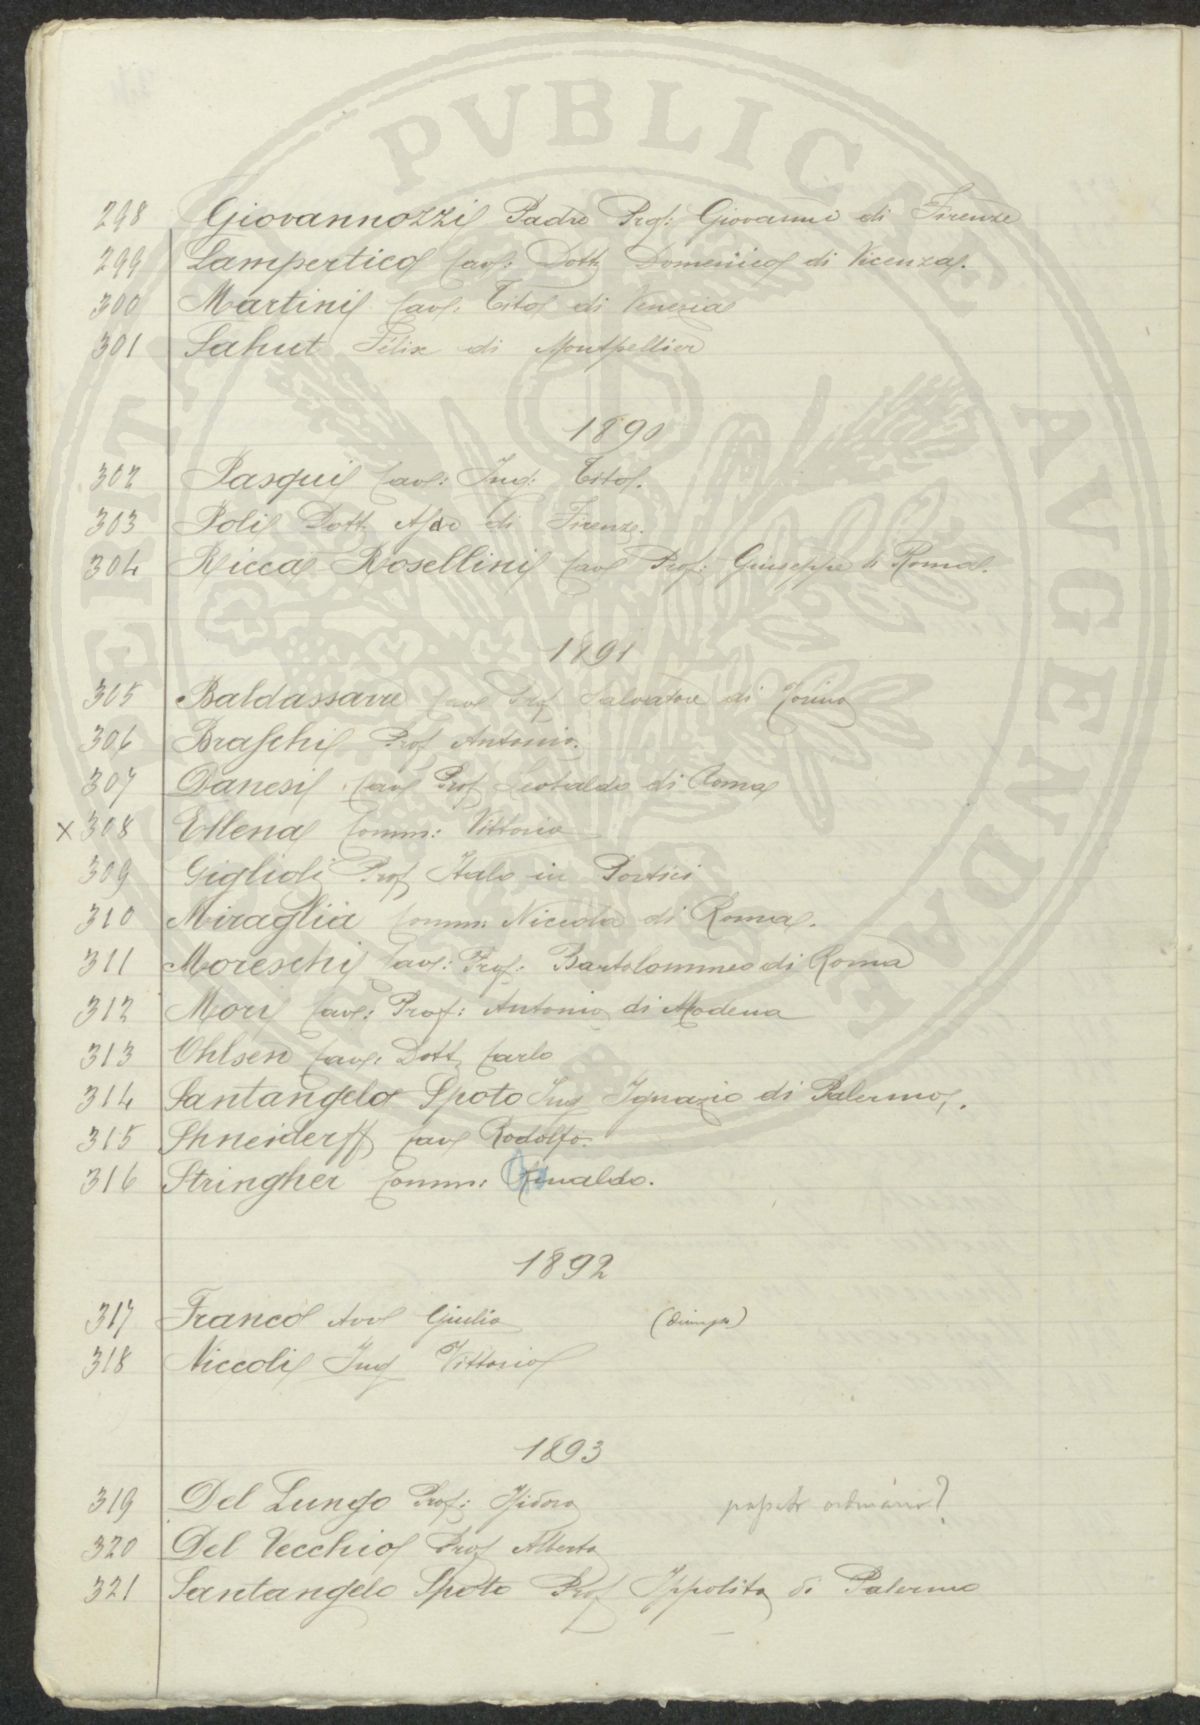 PVBLICAE AVGENDAE
298 Giovannozzi Padre Prof: Giovanni di Firenze
299 Lampertico Cav: Dott Domenico di Vicenza.
300 Martini Cav. Tito di Venezia
301 Sahut Félix di Montpellier
1890
302 Pasqui Cav: Ing: Tito.
303 Poli Dott. di Firenze.
304 Ricca Rosellini Cav Prof: Giuseppe di Roma.
1891
305 Baldassarre Cav Prof Salvatore di Torino
306 Braschi Prof Antonio.
307 Danesi Cav Prof Leobaldo di Roma
x 308 Ellena Comm: Vittorio
309 Giglioli Prof Italo in Portici
310 Miraglia Comm: Niccola di Roma.
311 Moreschi Cav: Prof: Bartolommeo di Roma
312 Mori Cav: Prof: Antonio di Modena
313 Ohlsen Cav. Dott Carlo
314 Santangelo Spoto Ing Ignazio di Palermo.
315 Shneiderff Cav Rodolfo.
316 Stringher Comm: Rinaldo.
1892
317 Franco Avv Giulio
318 Niccoli Ing Vittorio
1893
319 Del Lungo Prof: Isidoro passato ordinario?
320 Del Vecchio Prof Alberto
321 Santangelo Spoto Prof Ippolito di Palermo